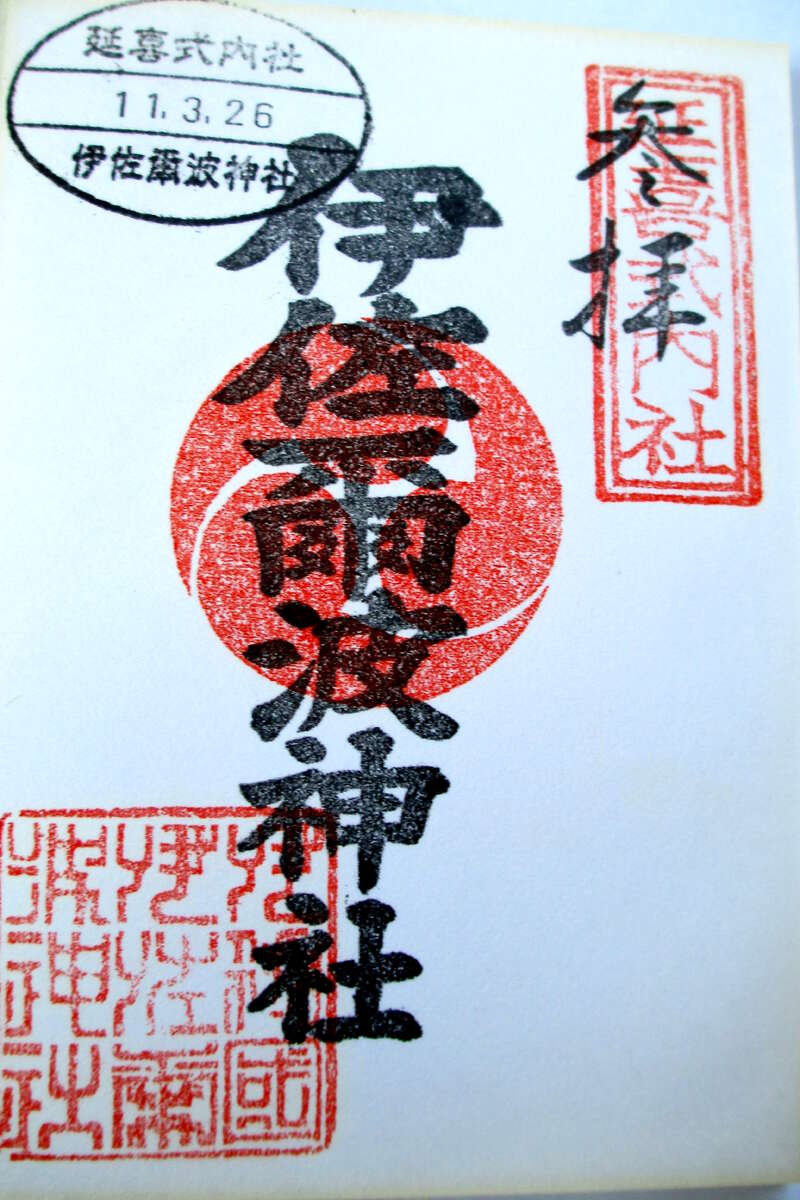 延喜式内社
11.3.26
伊佐爾波神社
参拝
延喜式内社
伊佐爾波神社
伊豫國
伊佐爾
波神社